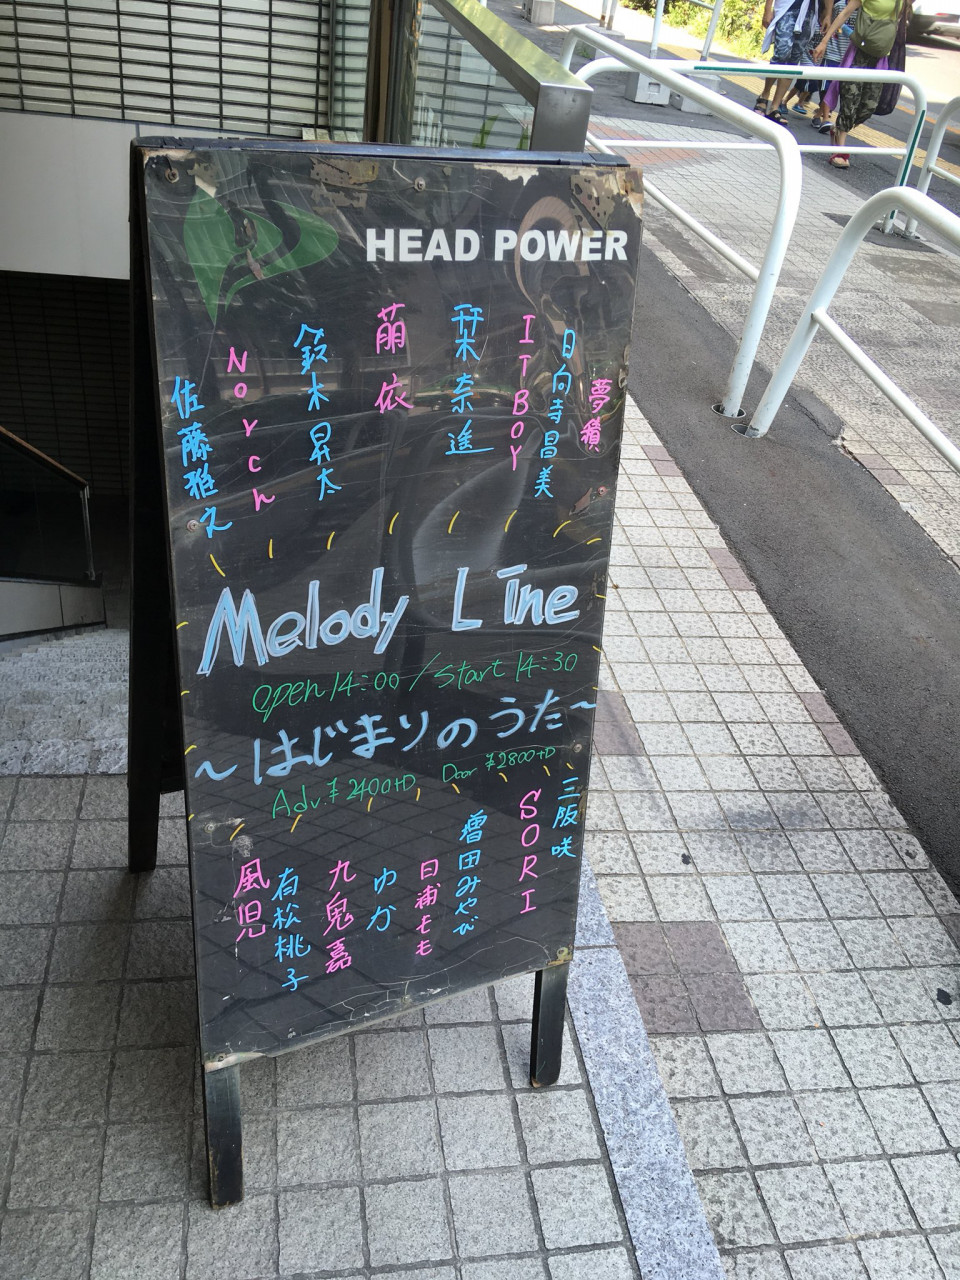 HEAD POWER
夢鏡
日向寺昌美
ITBOY
栞奈進
萠依
鈴木昇太
Norch
佐藤雅之
Melody Line
open 14:00 / start 14:30
~はじまりのうた~
Adv. ¥2400+D Door ¥2800+D
三阪咲
SORI
増田みやび
日浦もも
ゆか
九鬼嘉
有松桃子
風児